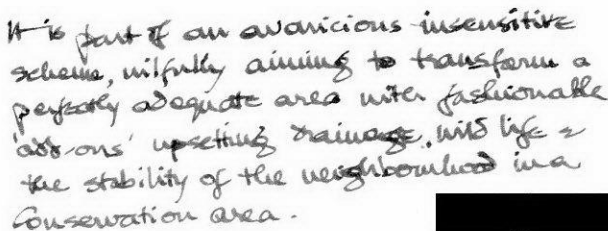 It is part of an avaricious insensitive
scheme, wilfully aiming to transform a
perfectly adequate area with fashionable
'add-ons' upsetting drainage, wild life &
the stability of the neighbourhood in a
Conservation area.